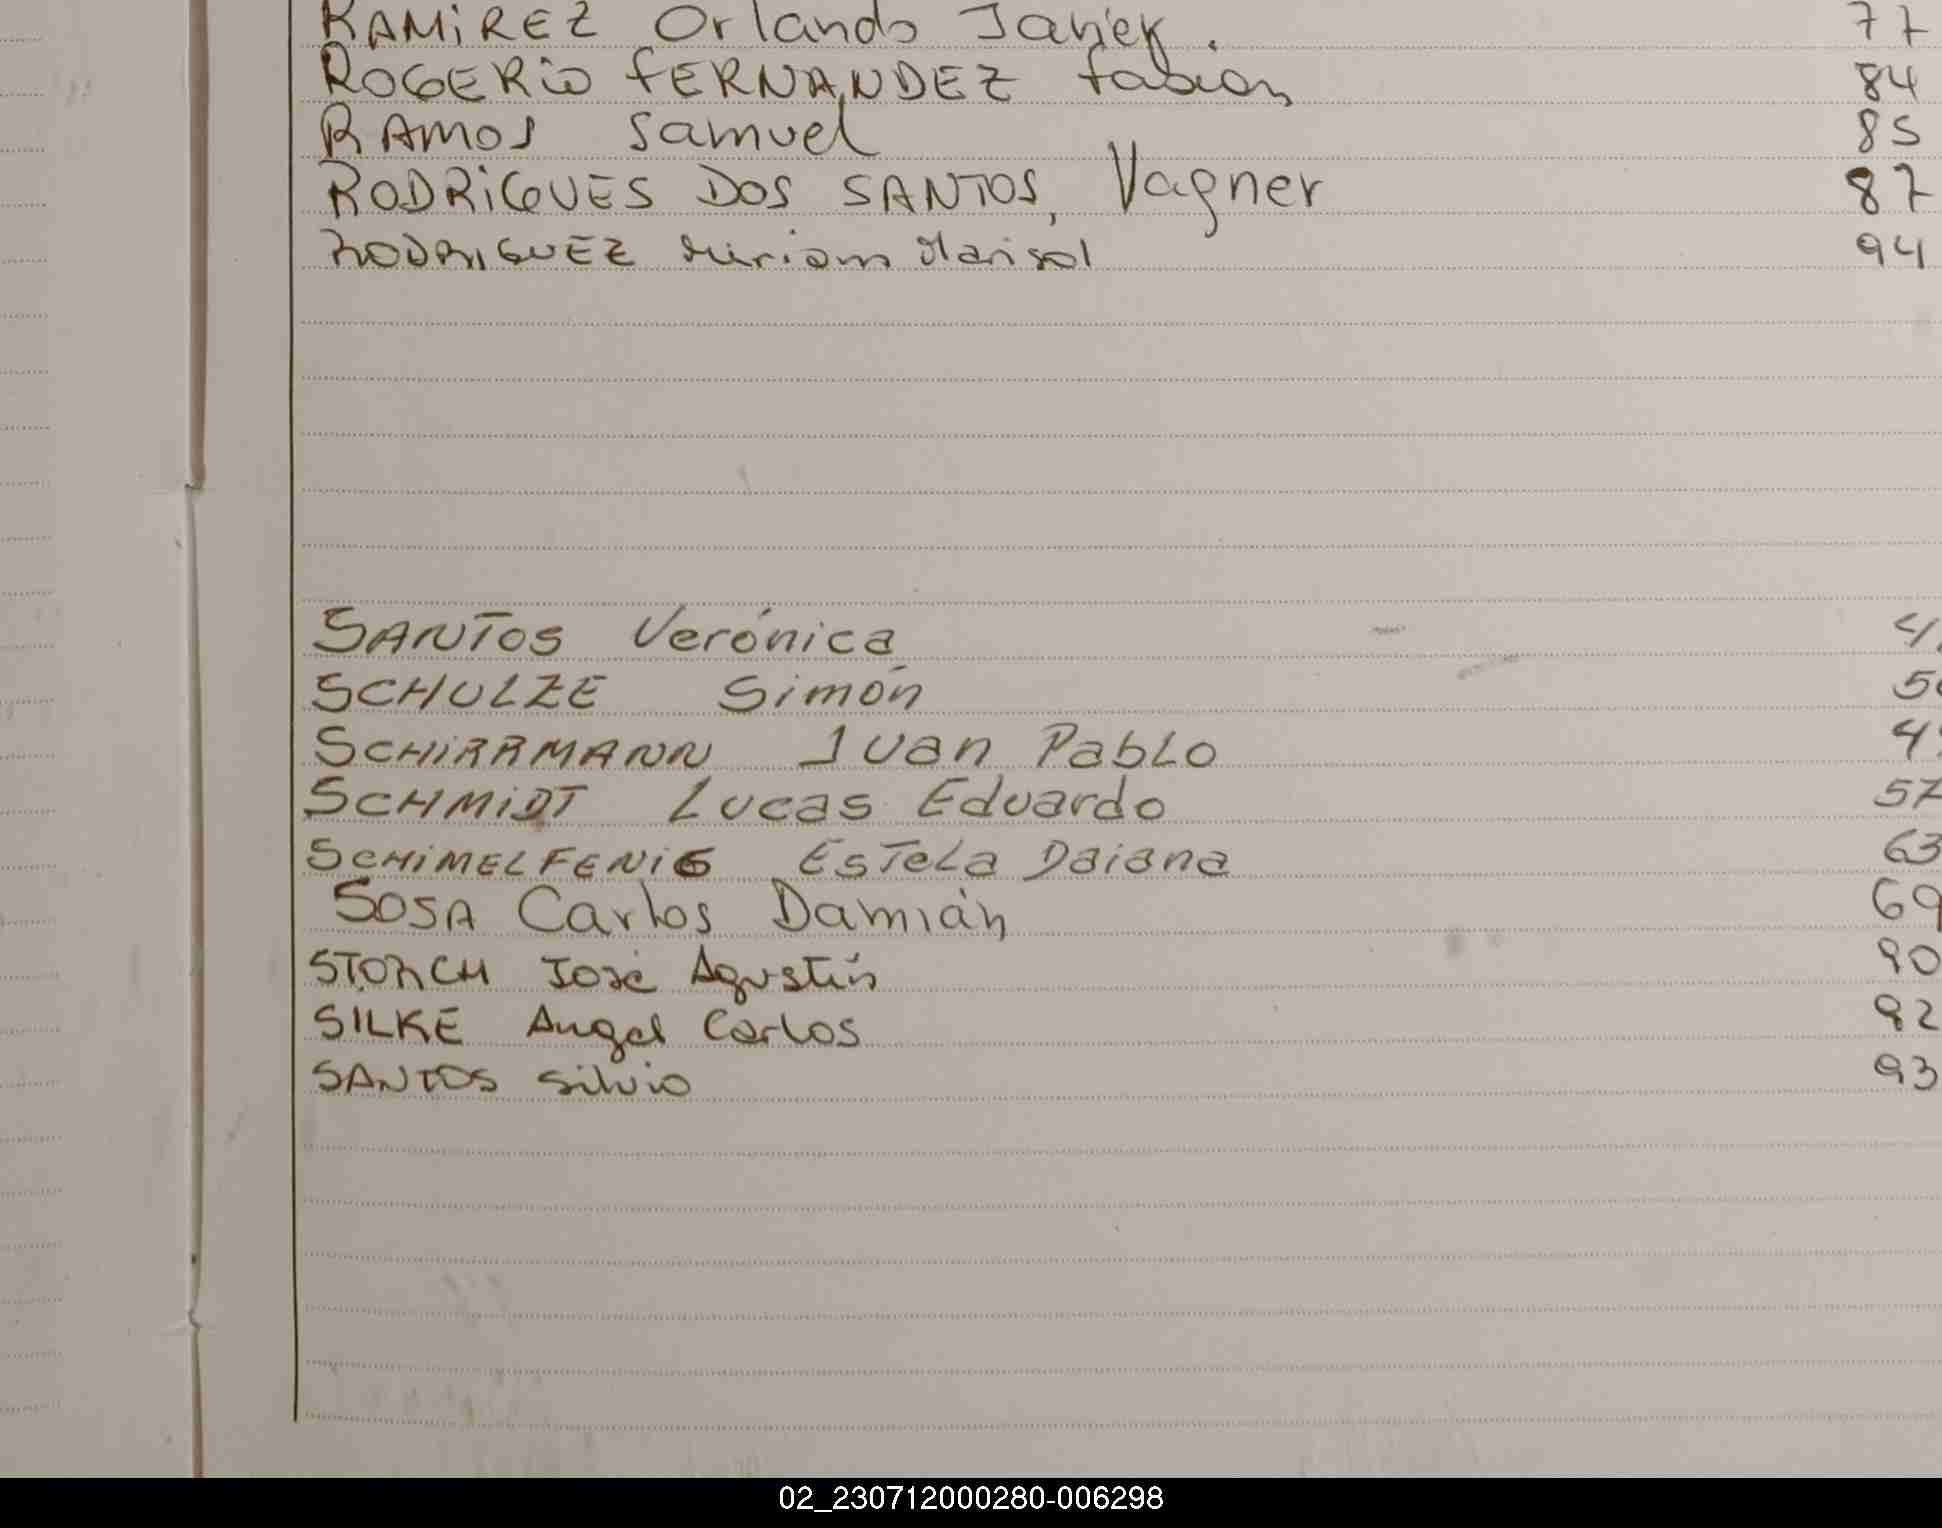 RAMiREZ Orlando Javier. 77
ROGERio fERNANDEZ fabian 84
RAMOS Samuel 85
RODRiGUES DOS SANTOS, Vagner 87
RODRIGUEZ Miriam Marisol 94
SANTOS Verónica
SCHULZE Simón
SCHiRRMANN JUan PabLo
SCHMiDT Lucas Eduardo 57
SCHiMELFENiG EsTeLa Daiana 63
SOSA Carlos Damián 69
STORCH José Agustín 90
SILKE Angel Carlos 92
SANTOS Silvio 93
02_230712000280-006298